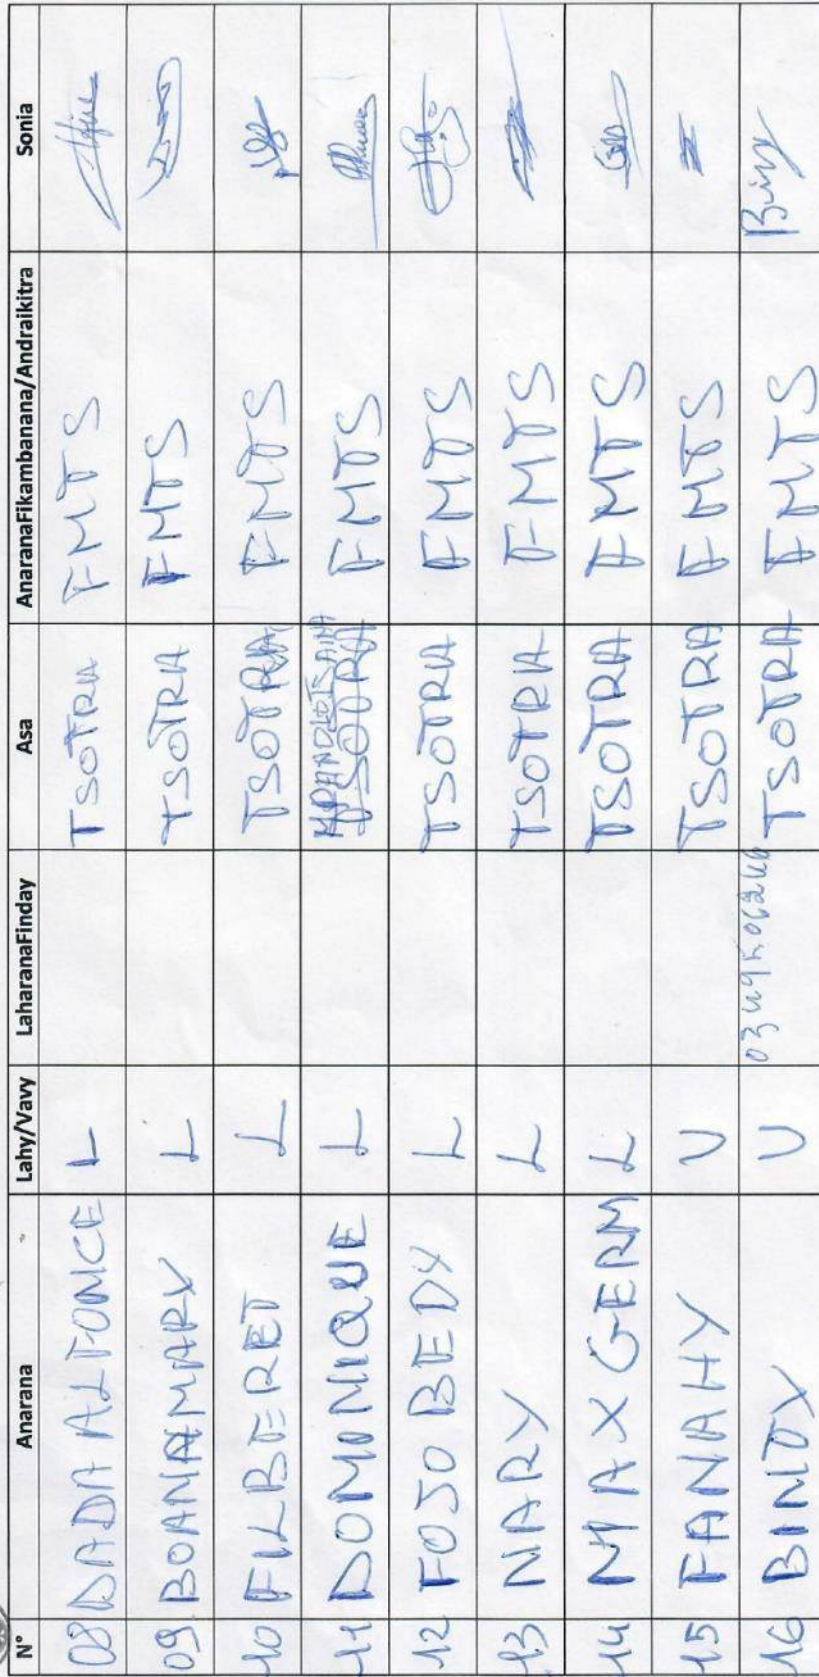 N° Anarana Lahy/Vavy LaharanaFinday Asa AnaranaFikambanana/Andraikitra Sonia
08 DADA ALFONCE L TSOTRA FMTS
09 BOANAMARY L TSOTRA FMTS
10 FILBERET L TSOTRA FMTS
11 DOMINIQUE L TSOTRA FMTS
12 FOJO BEDY L TSOTRA FMTS
13 NARY L TSOTRA FMTS
14 MAX GERM L TSOTRA FMTS
15 FANAHY V TSOTRA FMTS
16 BINTY V TSOTRA FMTS